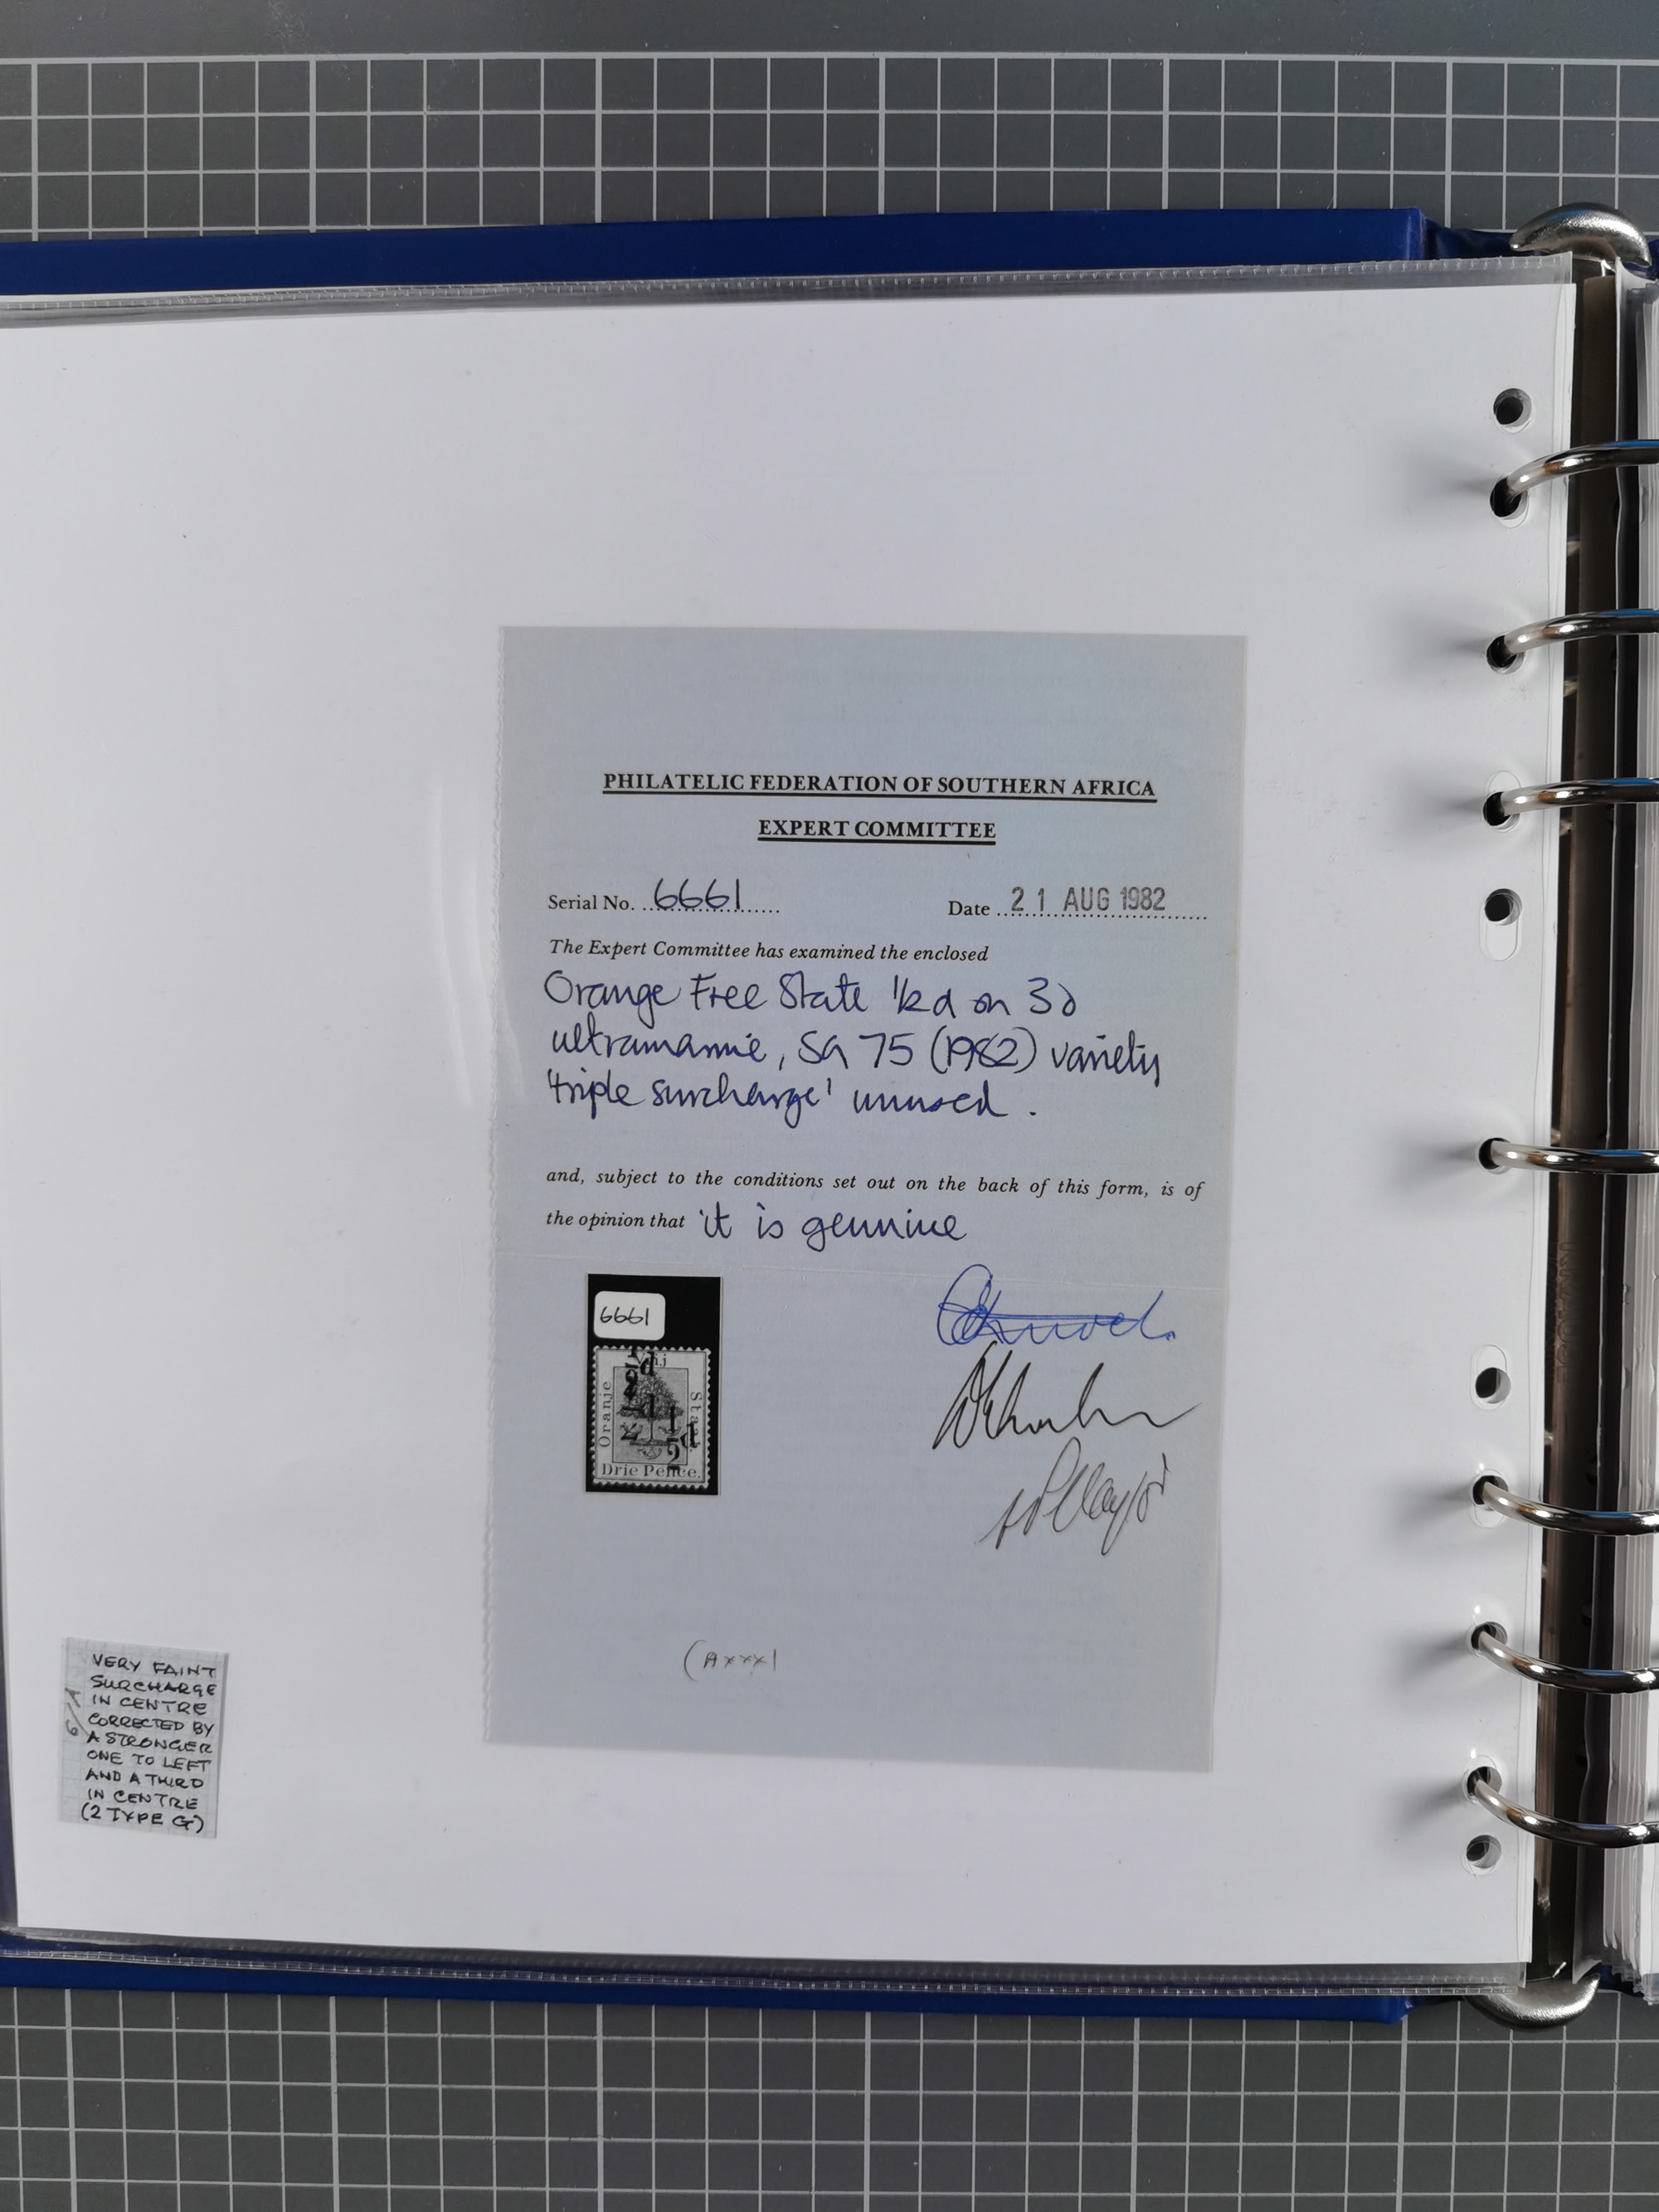 PHILATELIC FEDERATION OF SOUTHERN AFRICA
EXPERT COMMITTEE
Serial No. 6661
Date 21 AUG 1982
The Expert Committee has examined the enclosed
Orange Free State 1/2d on 3d
ultramarine, SG 75 (1982) variety
'triple surcharge' unused.
and, subject to the conditions set out on the back of this form, is of
the opinion that it is genuine
6661
Vrij
Oranje
Staat.
½d
½d
½d
Drie Pence.
(Axxx1
VERY FAINT
SURCHARGE
IN CENTRE
CORRECTED BY
A STRONGER
ONE TO LEFT
AND A THIRD
IN CENTRE
(2 TYPE G)